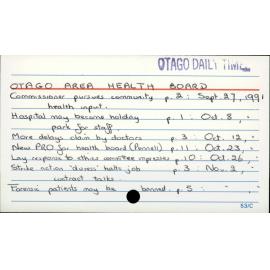 OTAGO DAILY TIMES
OTAGO AREA HEALTH BOARD
Commissioner pursues community p. 2 : Sept. 27, 1991
health input.
Hospital may become holiday p. 1 : Oct. 8, "
park for staff.
More delays claim by doctors p. 3 : Oct. 12, "
New PRO for health board (Pannell) p. 11 : Oct. 23, "
Lay response to ethics committee impresses p. 10 : Oct. 26, "
Strike action 'duress' halts job p. 3 : Nov. 2, "
contract talks.
Forensic patients may be banned. p. 5 : "
53/C